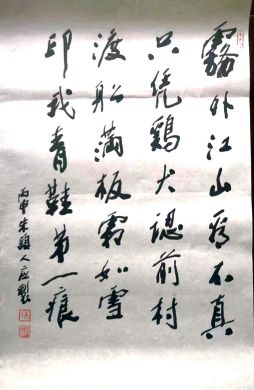 霧外江山看不真
只凭鷄犬認前村
渡船滿板霜如雪
印我青鞋第一痕
丙申朱穎人